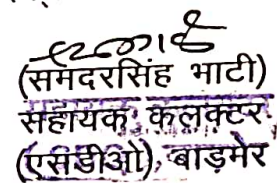 (समदरसिंह भाटी)
सहायक कलक्टर
(एसडीओ), बाड़मेर